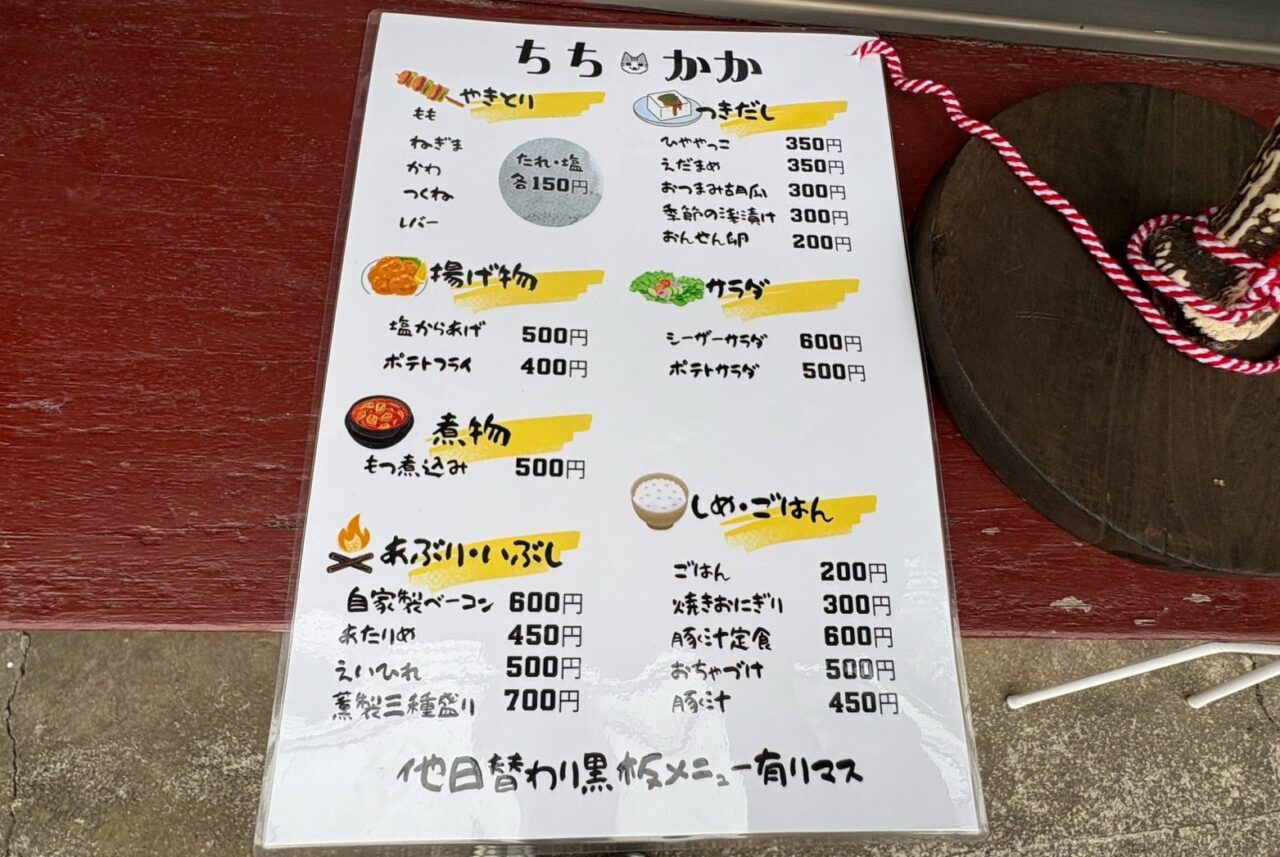 ちち かか
やきとり
もも
ねぎま
かわ
つくね
レバー
たれ・塩
各150円
揚げ物
塩からあげ 500円
ポテトフライ 400円
煮物
もつ煮込み 500円
あぶり・いぶし
自家製ベーコン 600円
あたりめ 450円
えいひれ 500円
薫製三種盛り 700円
つきだし
ひややっこ 350円
えだまめ 350円
おつまみ胡瓜 300円
季節の浅漬け 300円
おんせん卵 200円
サラダ
シーザーサラダ 600円
ポテトサラダ 500円
しめ・ごはん
ごはん 200円
焼きおにぎり 300円
豚汁定食 600円
おちゃづけ 500円
豚汁 450円
他日替わり黒板メニュー有リマス